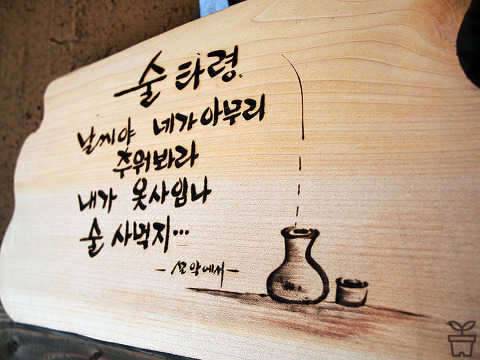 술 타령
날씨야 네가아무리
추워봐라
내가 옷사입나
술 사먹지...